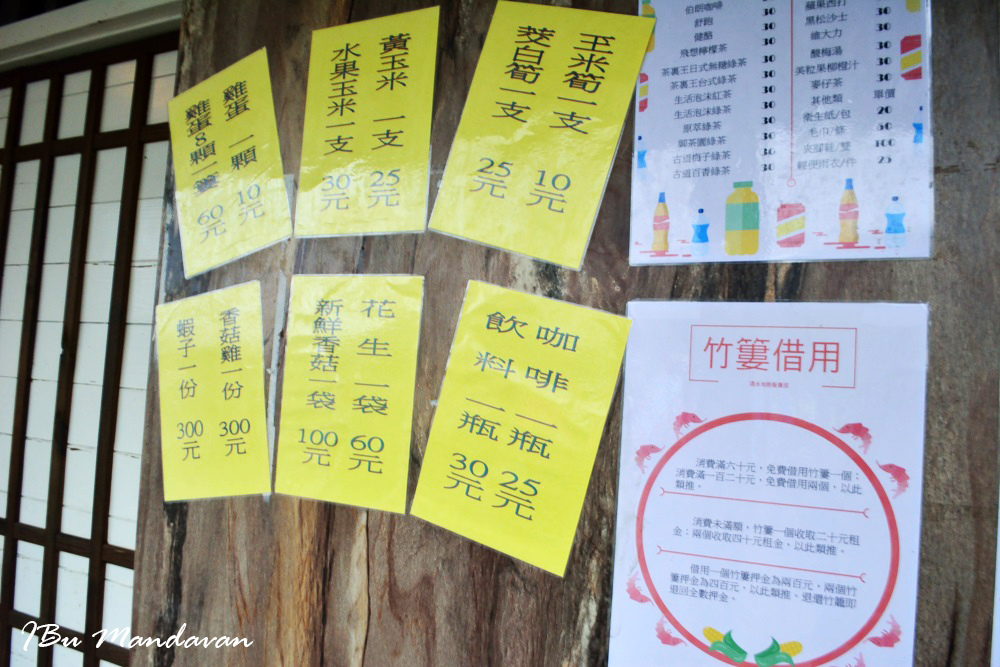 雞蛋 一顆 10元
雞蛋8顆一簍 60元
黃玉米 一支 25元
水果玉米一支 30元
玉米筍一支 10元
茭白筍一支 25元
香菇雞一份 300元
蝦子一份 300元
花生 一袋 60元
新鮮香菇一袋 100元
咖啡 一瓶 25元
飲料 一瓶 30元
伯朗咖啡 30
舒跑 30
健酪 30
飛想檸檬茶 30
茶裏王日式無糖綠茶 30
茶裏王台式綠茶 30
生活泡沫紅茶 30
生活泡沫綠茶 30
原萃綠茶 30
御茶園綠茶 30
古道梅子綠茶 30
古道百香綠茶 30
蘋果西打 30
黑松沙士 30
維大力 30
酸梅湯 30
美粒果柳橙汁 30
麥仔茶 30
其他類 單價
衛生紙/包 20
毛巾/條 50
夾腳鞋/雙 100
輕便雨衣/件 25
竹簍借用
消費滿六十元，免費借用竹簍一個；
消費滿一百二十元，免費借用兩個、以此
類推。
消費未滿額，竹簍一個收取二十元租
金；兩個收取四十元租金、以此類推。
借用一個竹簍押金為兩百元，兩個竹
簍押金為四百元，以此類推、退還竹簍即
退回全數押金。
IBu Mandavan